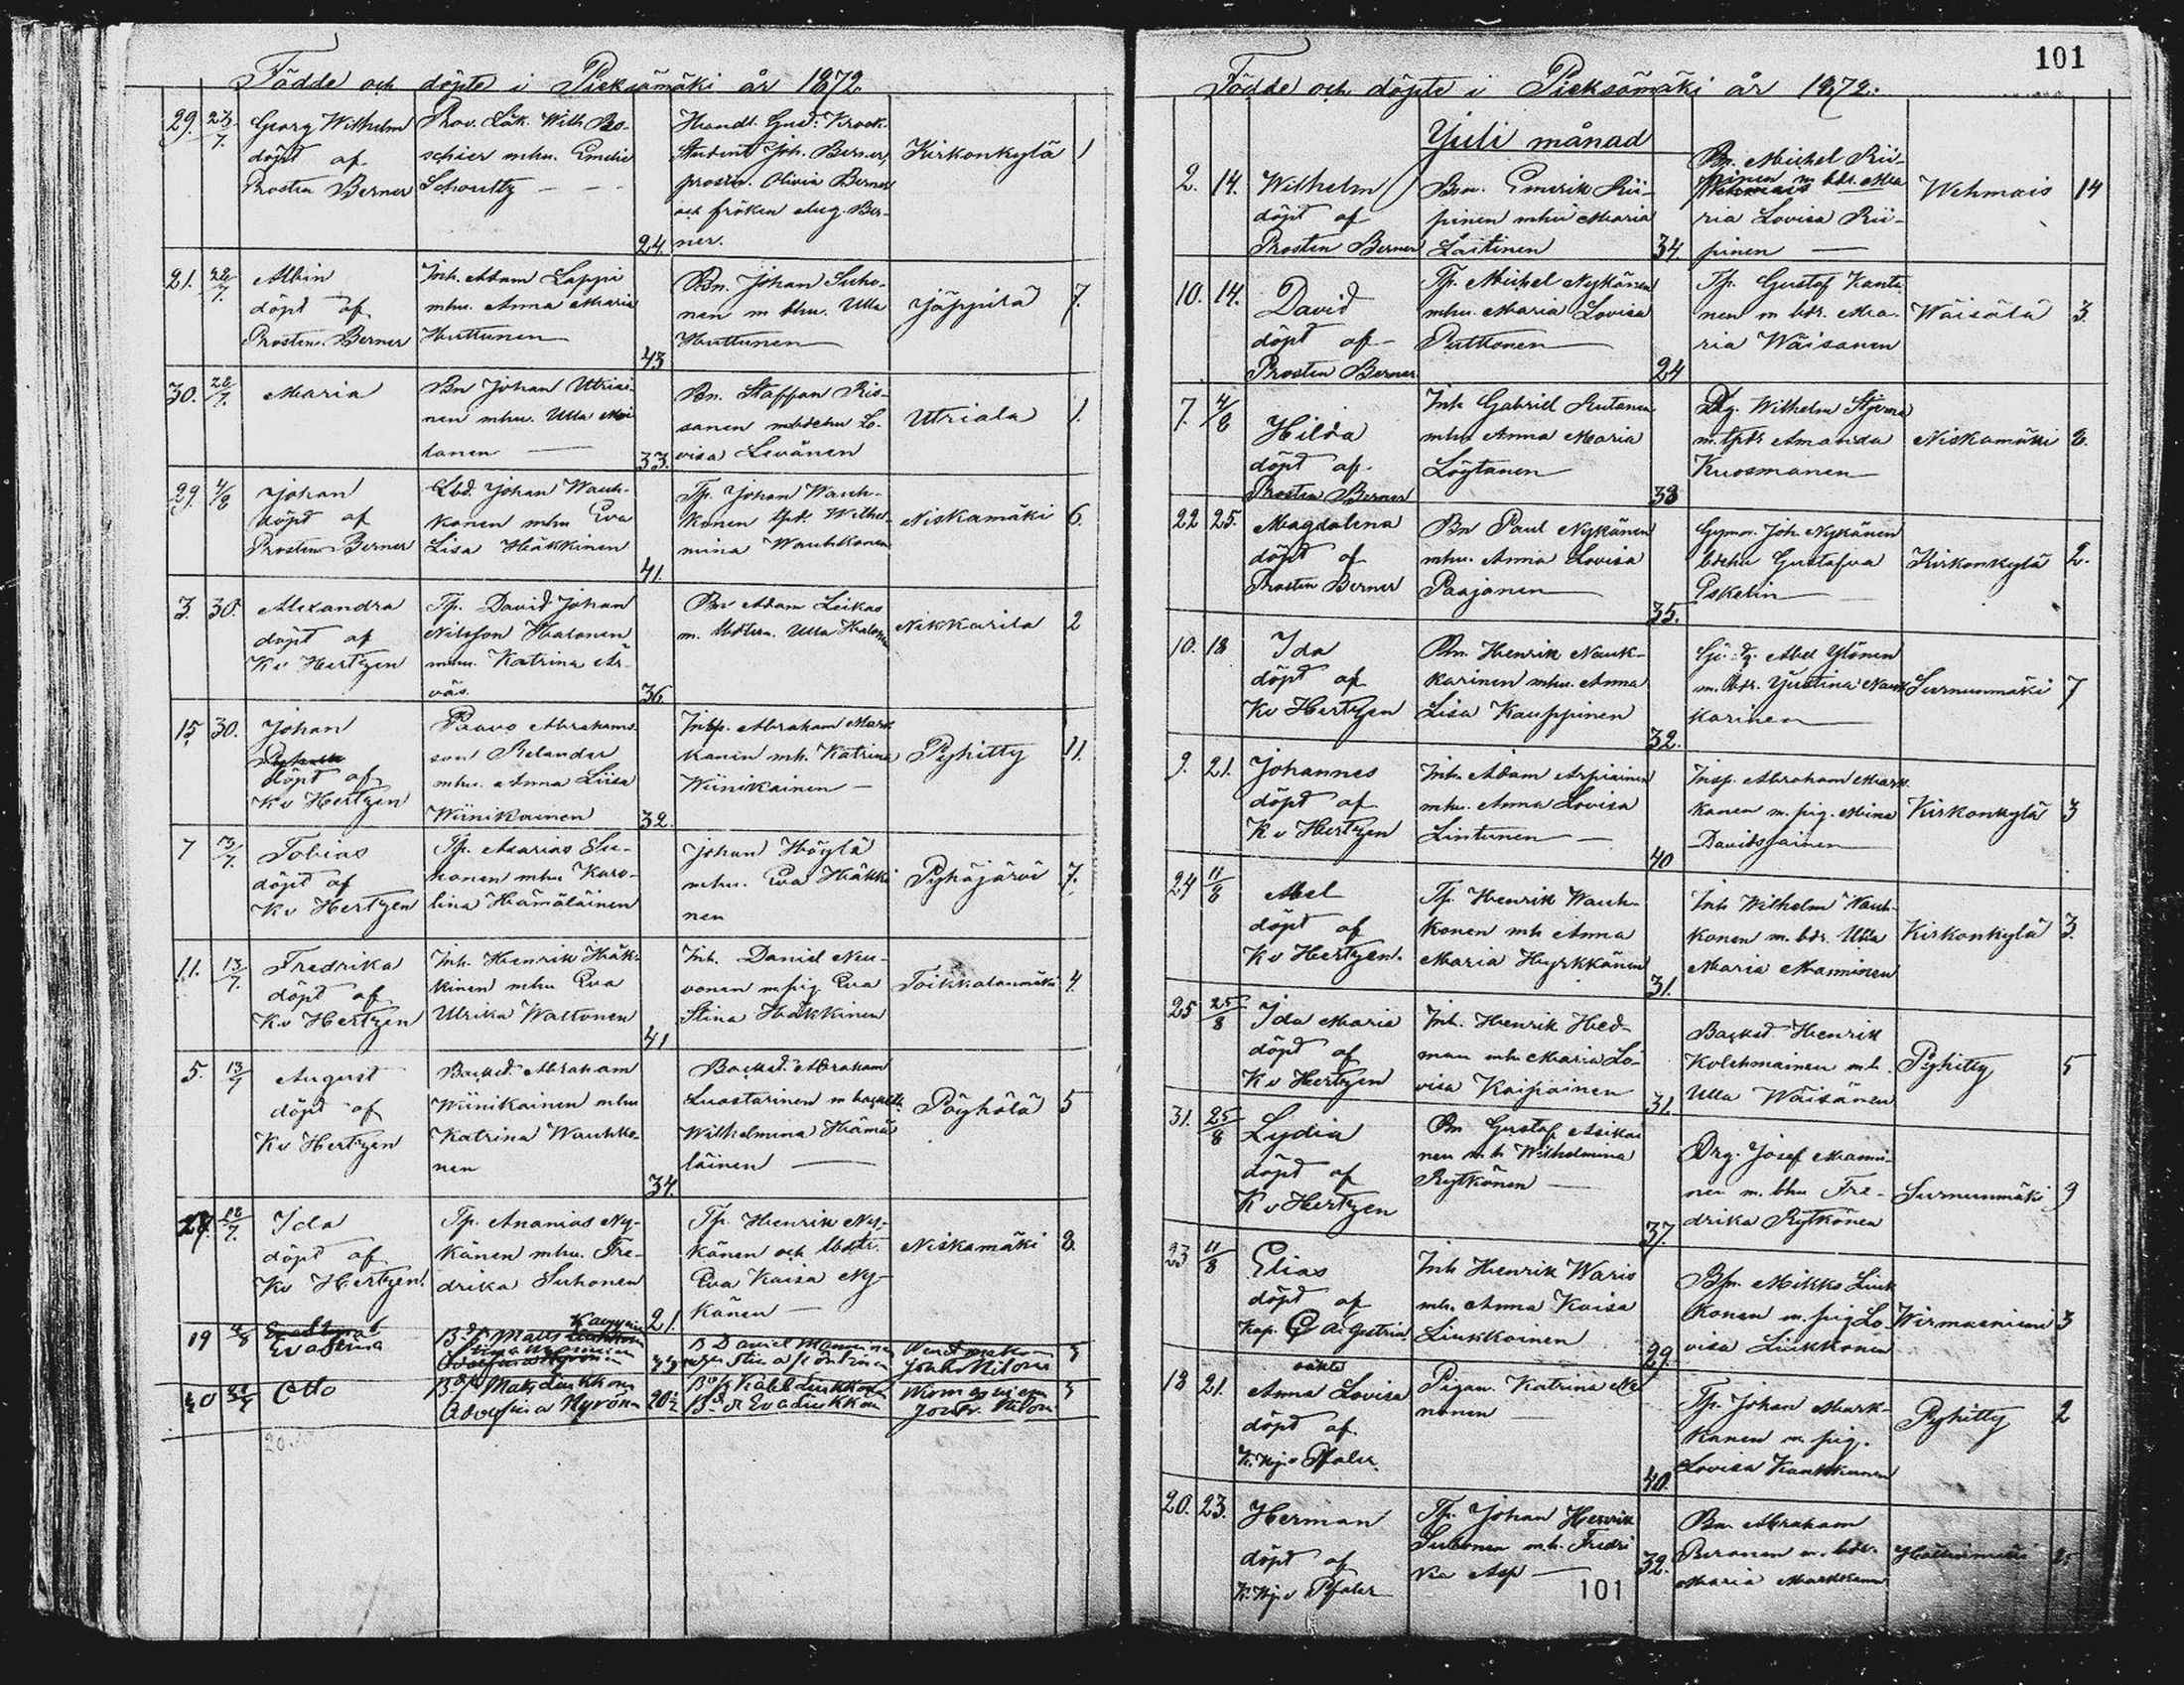 Födde och döpte i Pieksämäki år 1872.
29. 23/7. Georg Wilhelm döpt af Prosten Berner
Prov. Läk. Wilh. Bo-
schier mhu. Emelie
Schoultz
24.
Handl. Gust. Krook
Student Joh. Berner,
prostin. Olivia Berner
och fröken Aug. Ber-
ner.
Kirkonkylä 1
21. 28/7. Albin
döpt af
Prosten Berner
Inh. Adam Lappi
mhu. Anna Maria
Huttunen
43
Bn. Johan Suho-
nen m bhu. Ulla
Huttunen
Jäppilä 7.
30. 28/7. Maria
Bn Johan Utriai-
nen mhu. Ulla Moi
lanen
33.
Bn. Staffan Ris-
sanen Lo-
visa Levänen
Utriala 1.
29. 4/8 Johan
döpt af
Prosten Berner
Lbd. Johan Wauh-
konen mhu Eva
Lisa Häkkinen
41.
Tp. Johan Wauh-
konen tpd. Wilhel-
mina Wauhkonen
Niskamäki 6.
3. 30. Alexandra
döpt af
K v Hertzen
Tp. David Johan
Nilsson Halonen
mhu. Katrina Är-
väs.
36.
Bn Adam Leikas
m. Ulla Halonen
Nikkarila 2
15 30. Johan
döpt af
K v Hertzen
Paavo Abrahams
son Relander
mhu. Anna Liisa
Wiinikainen
32.
Insp. Abraham Mark
kanen mh. Katrina
Wiinikainen
Pyhitty 11.
7 13/7. Tobias
döpt af
K v Hertzen
Tp. Asarias Su-
honen mhu Karo-
lina Hämäläinen
Johan Höylä
mhu. Eva Häkki
nen
Pyhäjärvi 7.
11. 13/7. Fredrika
döpt af
K v Hertzen
Inh. Henrik Häk-
kinen mhu Eva
Ulrika Waltonen
41
Inh. Daniel Neu-
vonen m pig. Eva
Stina Häkkinen
Toikkalanmäki 4.
5. 13/7 August
döpt af
K v Hertzen
Backst. Abraham
Wiinikainen mhu
Katrina Wauhko-
nen
34.
Backst. Abraham
Luostarinen m
Wilhelmina Hämä
läinen
Pöyhölä 5
27. 18/7. Ida
döpt af
K v Hertzen.
Tp. Ananias Ny-
känen mhu. Fre-
drika Suhonen
21.
Tp. Henrik Ny-
känen och
Eva Kaisa Ny-
känen
Niskamäki 8.
19 4/8 Eva Stina
Matts
B Daniel Manninen
3
Otto
Mats Liukkonen
Adolfina Hyrönen
20 1/2
Kalel Liukkonen
Eva Liukkonen
3
101
Födde och döpte i Pieksämäki år 1872.
Juli månad
2. 14. Wilhelm
döpt af
Prosten Berner
Bn. Emerik Rii-
pinen mhu Maria
Laitinen
34.
Bn. Michel Rii-
pinen m bdr. Ma
ria Lovisa Rii-
pinen
Wehmais 14
10. 14. David
döpt af
Prosten Berner
Tp. Michel Nykänen
mhu. Maria Lovisa
Puttonen
24
Tp. Gustaf Kanti
nen m bdr. Ma-
ria Wäisänen
Wäisälä 3.
7. 4/8 Hilda
döpt af
Prosten Berner
Inh Gabriel Rutanen
mhu Anna Maria
Löytänen
38
Drg. Wilhelm
m. tpdr Amanda
Kuosmanen
Niskamäki 8.
22 25. Magdalena
döpt af
Prosten Berner
Bn Paul Nykänen
mhu. Anna Lovisa
Paajanen
35.
Gymn. Joh. Nykänen
Gustafva
Eskelin
Kirkonkylä 2.
10. 18 Ida
döpt af
K v Hertzen
Bn. Henrik Nauk-
karinen mhu. Anna
Lisa Kauppinen
32.
Abel Ylönen
m. bdr. Justina Nauk
karinen
Surnuinmäki 7
9. 21. Johannes
döpt af
K v Hertzen
Inh. Adam Arpiainen
mhu. Anna Lovisa
Lintunen
40
Insp. Abraham Mark
kanen m. pig. Mina
Davidsjainen
Kirkonkylä 3
24 11/8 Abel
döpt af
K v Hertzen.
Tp. Henrik Wauh-
konen mh Anna
Maria Hyrkkänen
31.
Inh Wilhelm Wauh-
konen m. bdr. Ulla
Maria Manninen
Kirkonkylä 3.
25 25/8 Ida Maria
döpt af
K v Hertzen
Inh. Henrik Hed-
man mh Maria Lo-
visa Kaipainen
31.
Backst Henrik
Kolehmainen mh.
Ulla Wäisänen
Pyhitty 5
31. 25/8 Lydia
döpt af
K v Hertzen
Bn Gustaf Asikai
nen mh Wilhelmina
Rytkönen
37.
Drg. Josef Manni-
nen m. bhu Fre-
drika Rytkönen
Surnuinmäki 9
23 11/8 Elias
döpt af
Kap.
Inh Henrik Waris
mh. Anna Kaisa
Liukkoinen
29.
Bn. Mikko Liuk
konen m. pig Lo-
visa Liukkonen
Wirmasniemi 3
18 21. oäkta
Anna Lovisa
döpt af
K. Hj. v Pfaler
Pigan Katrina Ne
nonen
40.
Tp. Johan Mark-
kanen m. pig.
Lovisa Kankkunen
Pyhitty 2
20. 23. Herman
döpt af
K. Hj. v Pfaler
Tp. Johan Henrik
Suhonen mh. Fredri
ka Asp
32.
Bn. Abraham
Pieronen m. bdr.
Maria Markkanen
101